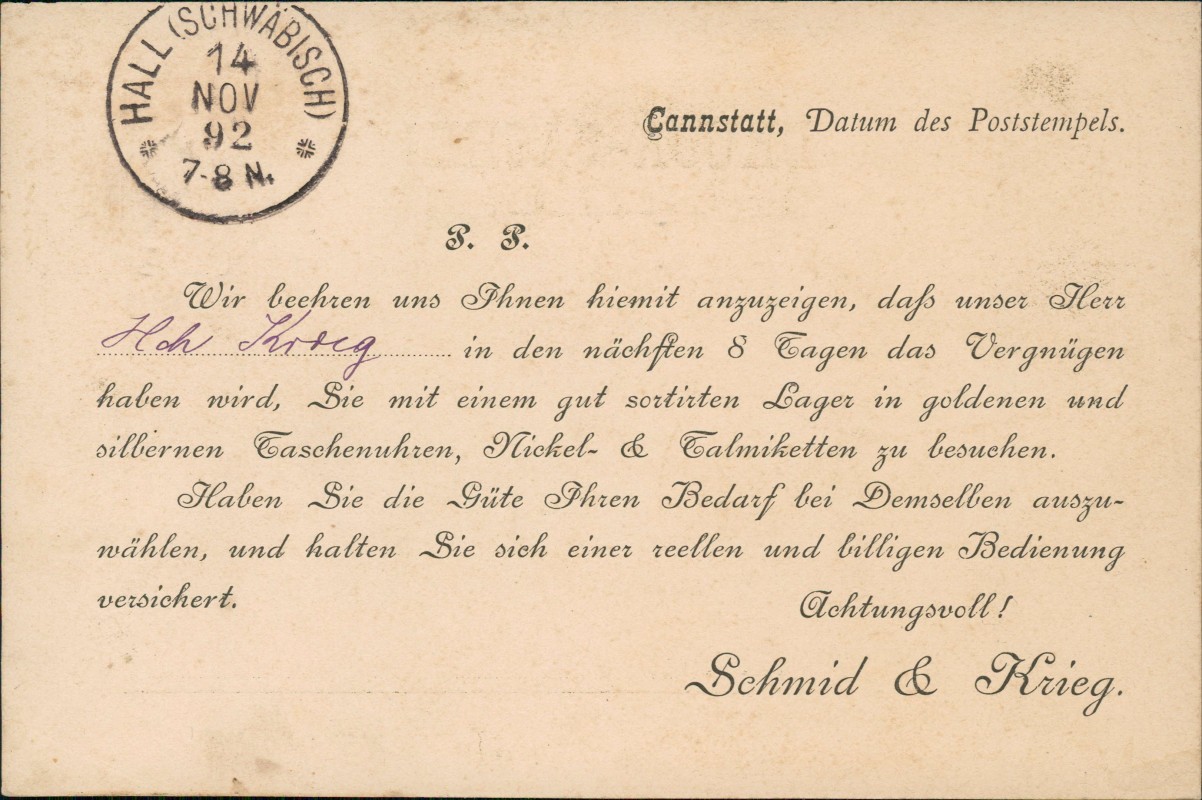 HALL (SCHWÄBISCH)
14
NOV
92
7-8 N.
Cannstatt, Datum des Poststempels.
P. P.
Wir beehren uns Ihnen hiemit anzuzeigen, daſs unser Herr
Hch Krieg in den nächſten 8 Tagen das Vergnügen
haben wird, Sie mit einem gut sortirten Lager in goldenen und
silbernen Taschenuhren, Nickel- & Talmiketten zu besuchen.
Haben Sie die Güte Ihren Bedarf bei Demselben auszu-
wählen, und halten Sie sich einer reellen und billigen Bedienung
versichert.
Achtungsvoll!
Schmid & Krieg.